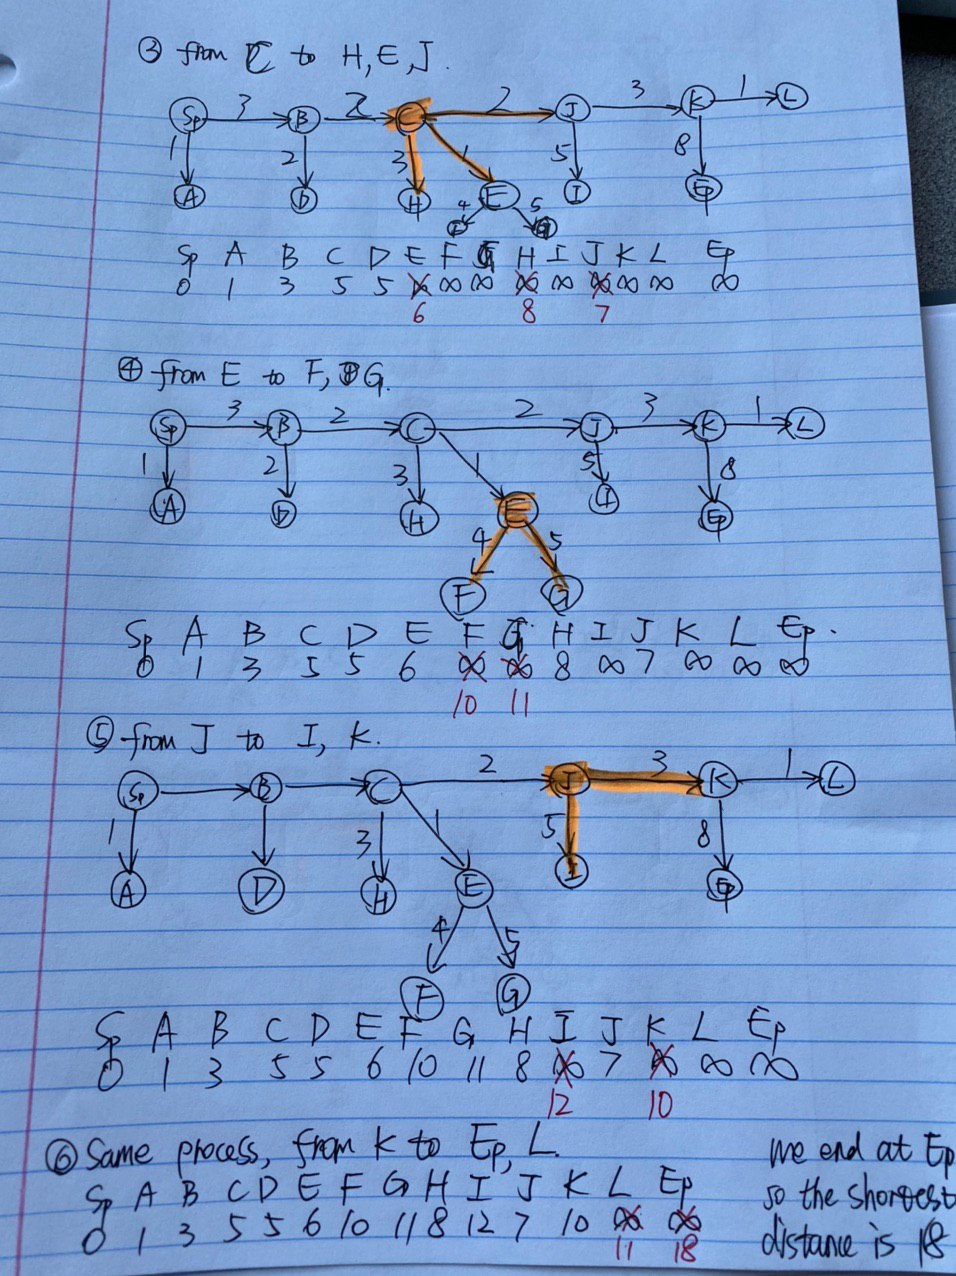 ③ from C to H, E, J.
Sp 3 B 2 C 2 J 3 K 1 L
1 2 3 1 5 8
A D H E I Ep
4 5
F G
Sp A B C D E F G H I J K L Ep
0 1 3 5 5 ∞ ∞ ∞ ∞ ∞ ∞ ∞ ∞ ∞
6 8 7
④ from E to F, G.
Sp 3 B 2 C 2 J 3 K 1 L
1 2 3 1 5 8
A D H E I Ep
4 5
F G
Sp A B C D E F G H I J K L Ep.
0 1 3 5 5 6 ∞ ∞ 8 ∞ 7 ∞ ∞ ∞
10 11
⑤ from J to I, K.
Sp B C 2 J 3 K 1 L
1 3 1 5 8
A D H E I Ep
4 5
F G
Sp A B C D E F G H I J K L Ep
0 1 3 5 5 6 10 11 8 ∞ 7 ∞ ∞ ∞
12 10
⑥ Same process, from K to Ep, L.
Sp A B C D E F G H I J K L Ep
0 1 3 5 5 6 10 11 8 12 7 10 ∞ ∞
11 18
we end at Ep
so the shortest
distance is 18